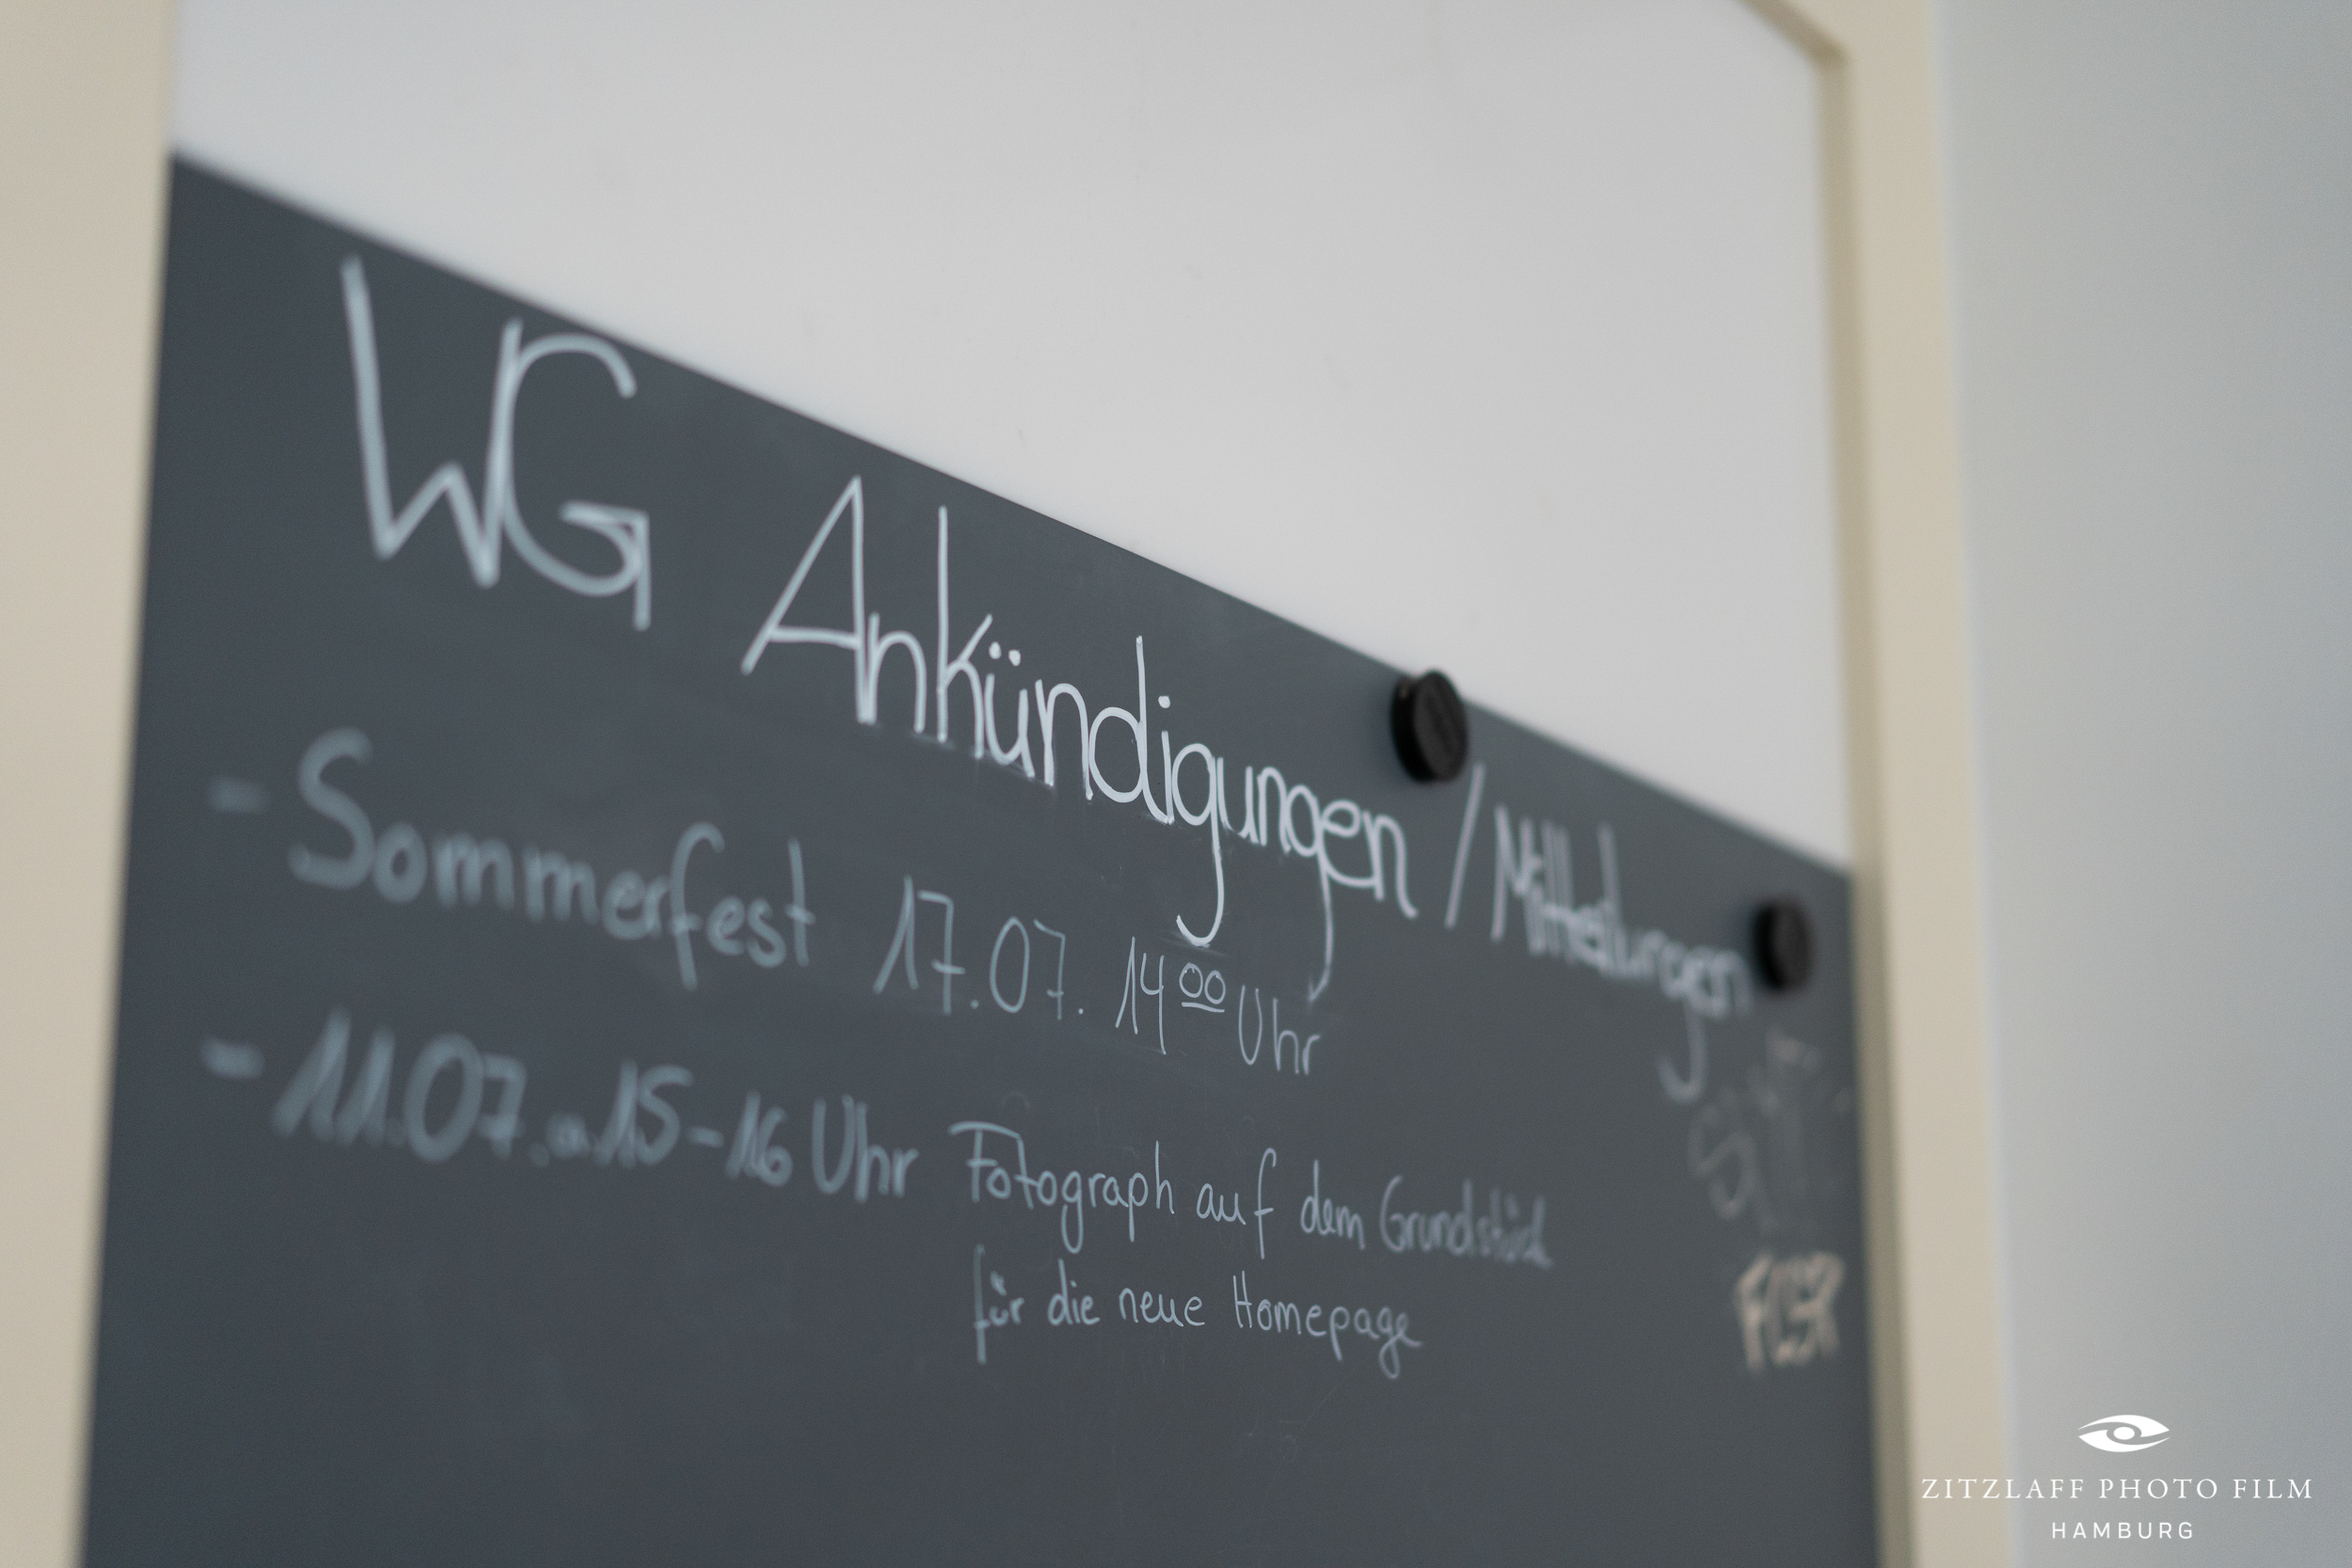 WG Ankündigungen / Mitteilungen
- Sommerfest 17.07. 14 00 Uhr
- 11.07. a. 15-16 Uhr Fotograph auf dem Grundstück
für die neue Homepage
ZITZLAFF PHOTO FILM
HAMBURG